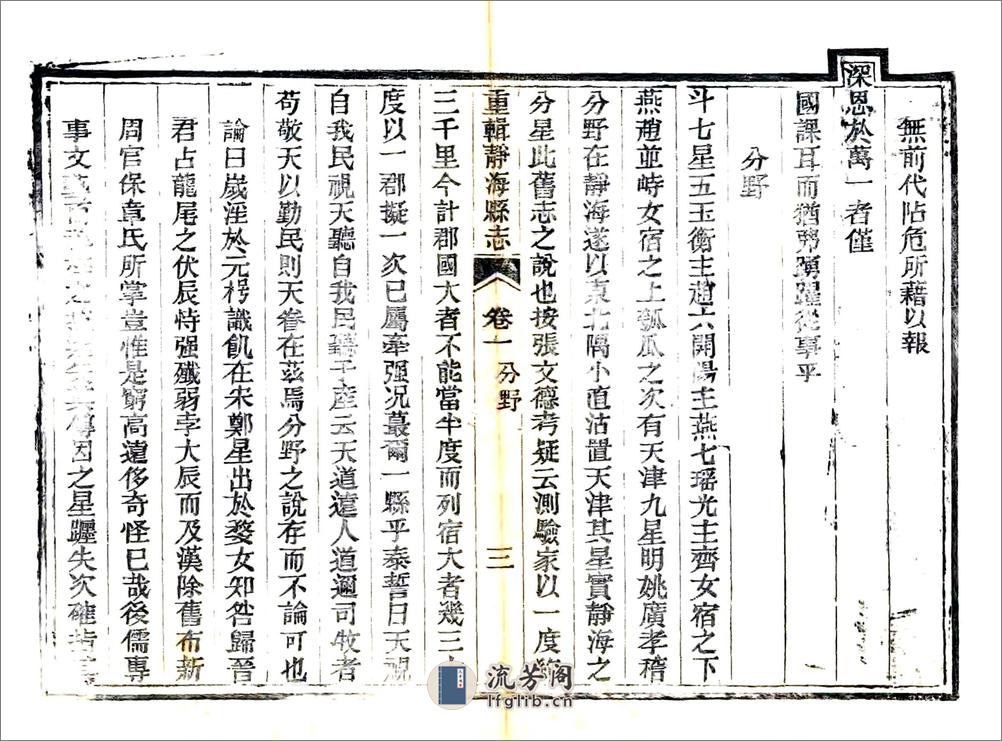 無前代阽危所藉以報
深恩於萬一者僅
國課耳而猶弗踴躍從事乎
分野
斗七星五玉衡主趙六開陽主燕七瑤光主齊女宿之下
燕趙並峙女宿之上瓠瓜之次有天津九星明姚廣孝稽
分野在靜海遂以東北隅小直沽置天津其星實靜海之
分星此舊志之說也按張文德考疑云測驗家以一度
重輯靜海縣志 卷一 分野 三
三千里今計郡國大者不能當半度而列宿大者幾三
度以一郡擬一次已屬牽强况蕞爾一縣乎泰誓曰天視
自我民視天聽自我民聽子產云天道遠人道邇司牧者
苟敬天以勤民則天眷在茲焉分野之說存而不論可也
論曰歲淫於元枵識飢在宋鄭星出於婺女知咎歸晉
君占龍尾之伏辰恃强殲弱孛大辰而及漢除舊布新
周官保章氏所掌豈惟是窮高遠侈奇怪已哉後儒專
事文 傳因之星躔失次確
流芳阁
lfglib.cn